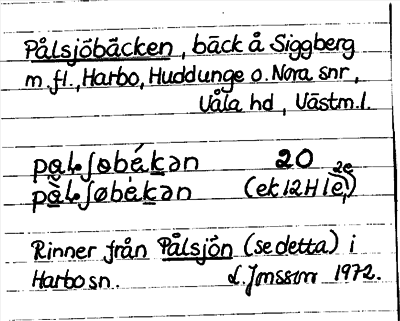 Pålsjöbäcken, bäck å Siggberg
m.fl., Harbo, Huddunge o. Nora snr,
Våla hd, Västm.l.
pa̲ḷʃøbèk̲ən 20 2e
pà̲ḷʃøbèk̲ən (ek 12H 1e,)
Rinner från Pålsjön (se detta) i
Harbo sn. L. Jonsson 1972.